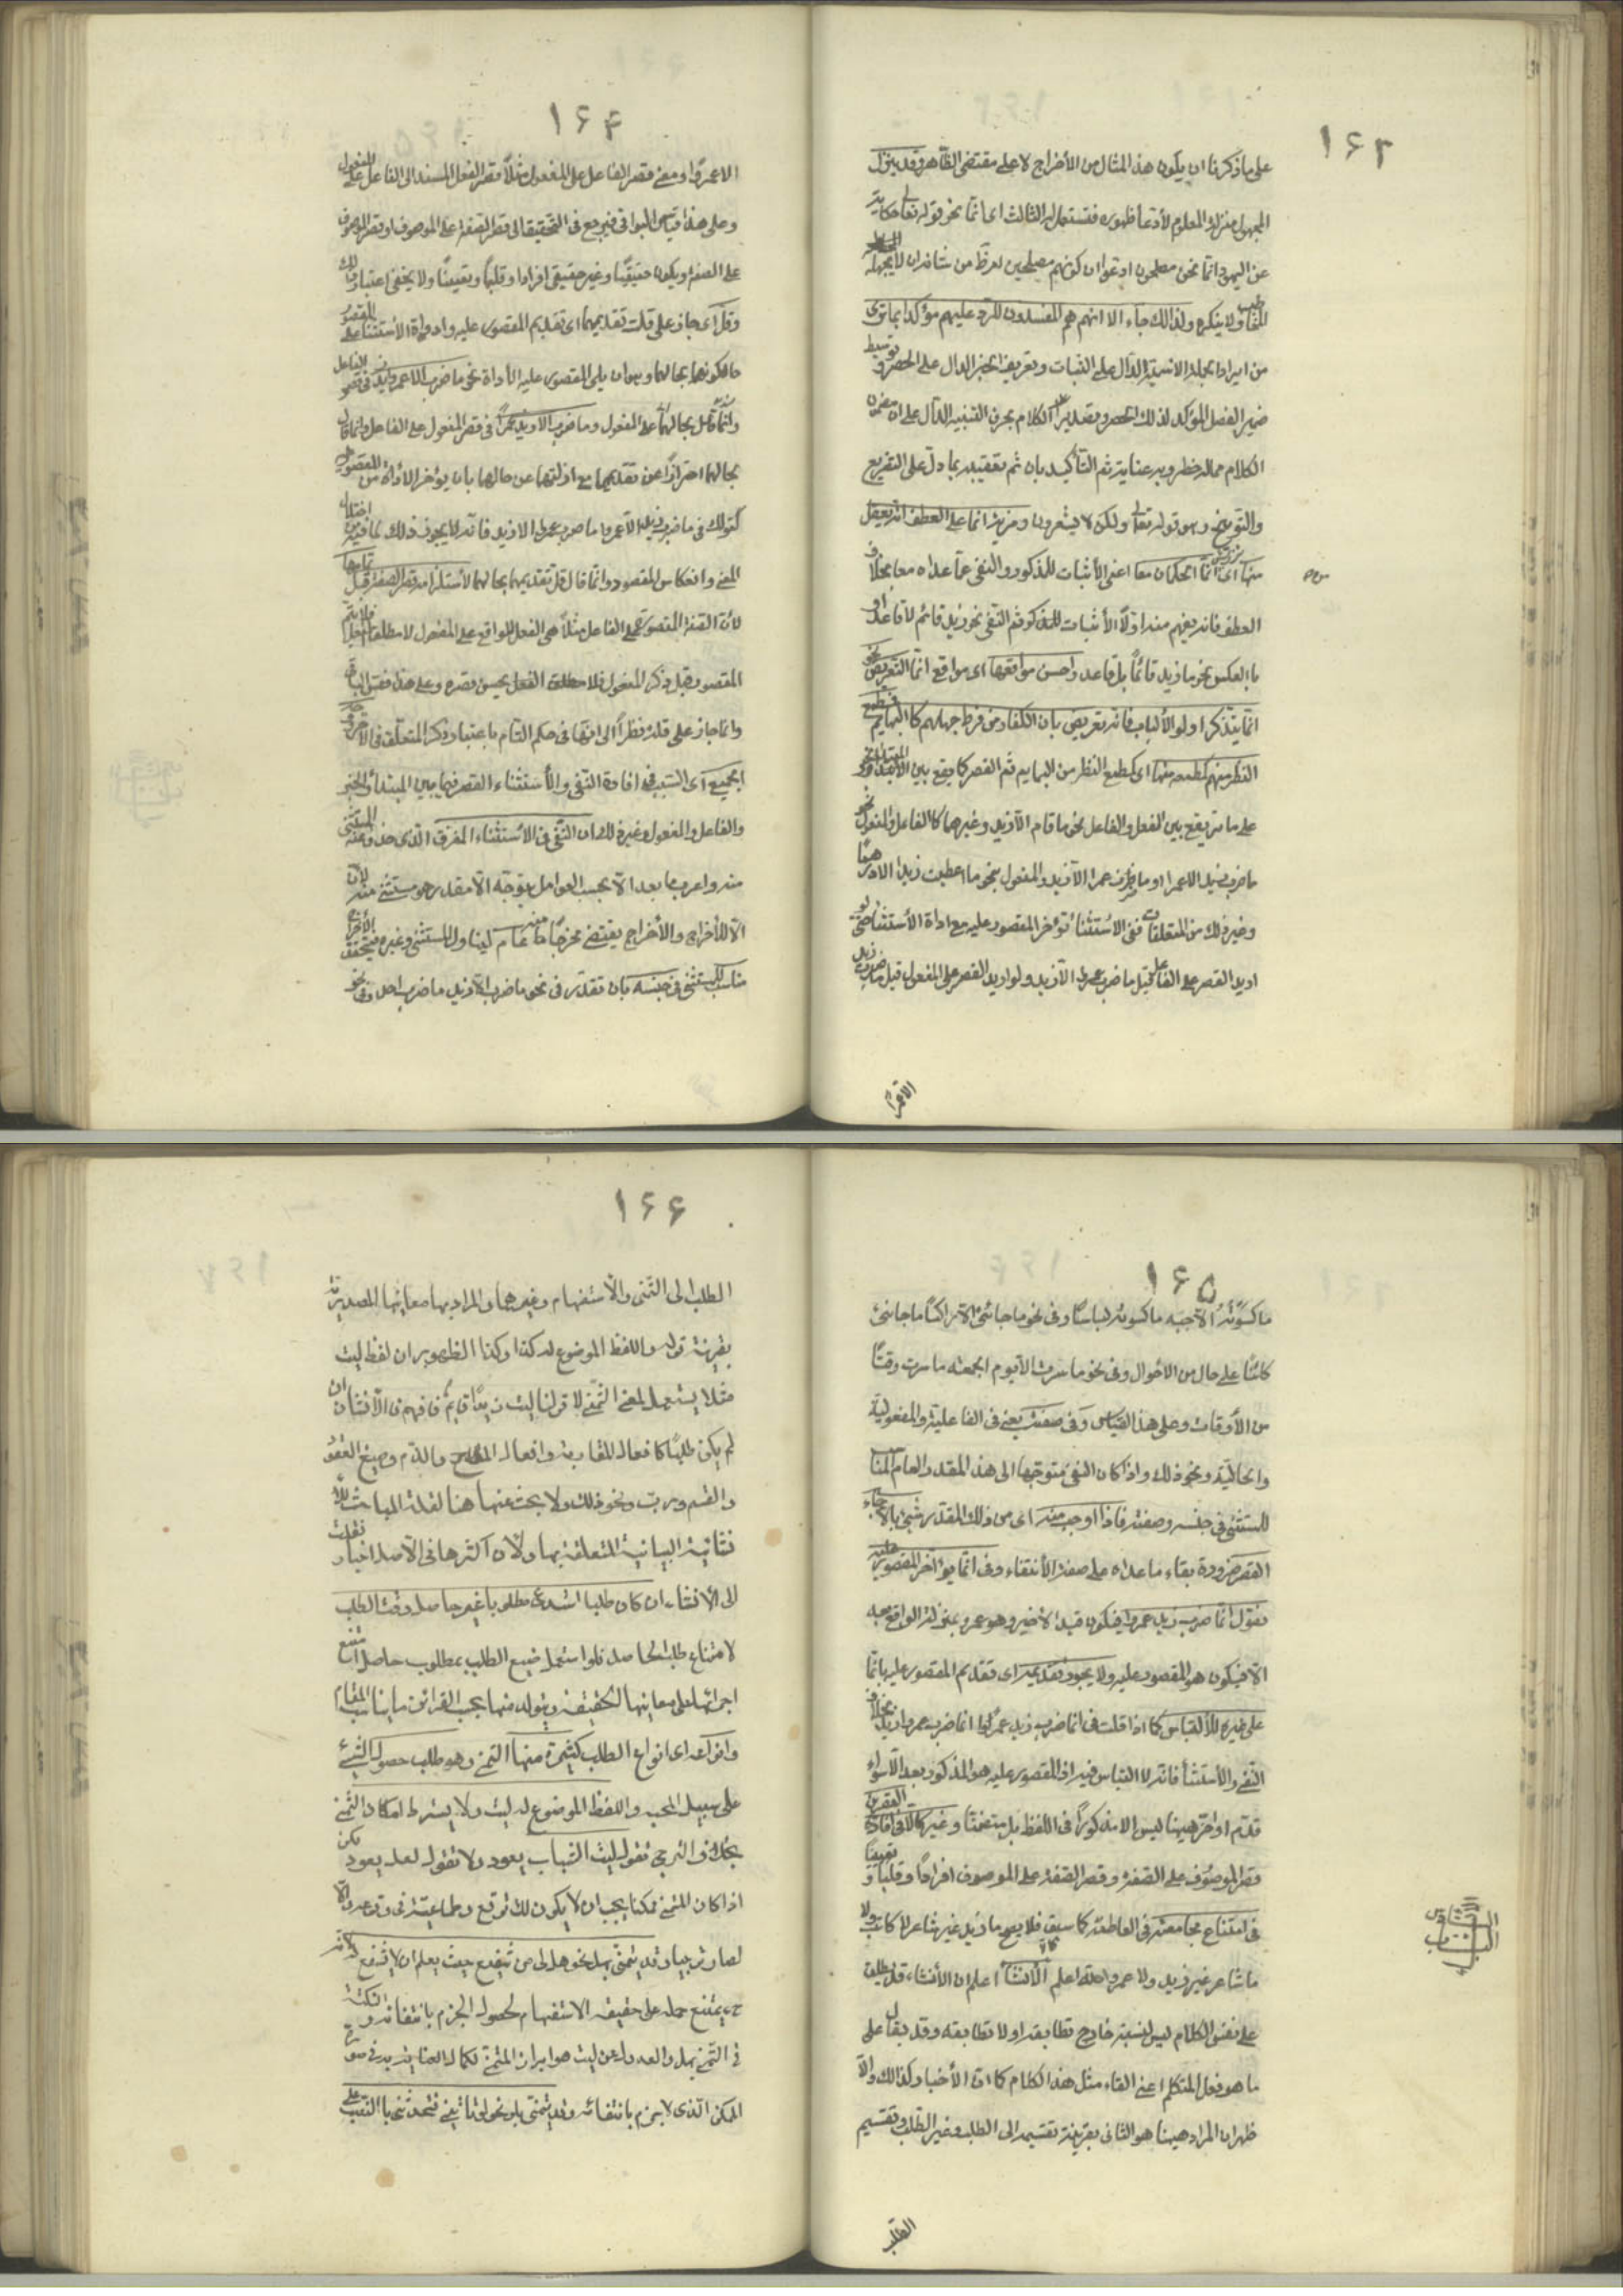 ١۶٣
على ما ذكرنا ان يكون هذا المثال من الأخراج لا على مقتضى الظاهر وقد ينزل
المجهول منزلة المعلوم لأدعاء ظهوره فتستعمل له الثالث اى انما نحو قوله تعالى حكاية
عن اليهود انما نحن مصلحون ادعوا ان كونهم مصلحين امر ظاهر من شانه ان لا يجهله
المخاطب ولا ينكره ولذلك جاء الا انهم هم المفسدون للرد عليهم مؤكدا بما ترى
من ايراد الجملة الاسمية الدال على الثبات وتعريف الخبر الدال على الحصر وتوسيط
ضمير الفصل المؤكد لذلك الحصر وتصدير الكلام بحرف التنبيه الدال على ان مضمون
الكلام مما له خطر وبه عناية ثم التأكيد بان ثم تعقيبه بما دل على التقريع
والتوبيخ وهو قوله تعالى ولكن لا يشعرون ومزية انما على العطف انه يعقل
منها اى من انما الحكمان معا اعنى الأثبات للمذكور والنفى عما عداه معا بخلاف
العطف فانه يفهم منه اولا الأثبات للمذكور ثم النفى نحو زيد قائم لا قاعد او
بالعكس نحو ما زيد قائما بل قاعد واحسن مواقعها اى مواقع انما التعريض نحو
انما يتذكر اولو الألباب فانه تعريض بان الكفار من فرط جهلهم كالبهايم فطمع
النظر منهم كطمعه منها اى كطمع النظر من البهايم ثم القصر كما يقع بين المبتدا والخبر
على ما مر يقع بين الفعل والفاعل نحو ما قام الا زيد وغيرهما كالفاعل والمفعول نحو
ما ضرب زيد الا عمرا او ما ضرب عمرا الا زيد والمفعول نحو ما اعطيت زيدا الا درهما
وغير ذلك من المتعلقات ففى الاستثناء يؤخر المقصور عليه مع اداة الأستثناء حتى لو
اريد القصر على الفاعل قيل ما ضرب عمرا الا زيد ولو اريد القصر على المفعول قيل ما ضرب زيد
الا عمرا
١۶۴
الا عمرًا ومعنى قصر الفاعل على المفعول مثلًا قصر الفعل المسند الى الفاعل على المفعول
وعلى هذا قياس البواقى فيرجع فى التحقيق الى قصر الصفة على الموصوف او قصر الموصوف
على الصفة ويكون حقيقيًا وغير حقيقى افرادا وقلبًا وتعيينًا ولا يخفى اعتبار ذلك
وقل اى جاز على قلت تقديمهما اى تقديم المقصور عليه واداة الأستثناء على المقصور
حال كونهما بحالهما وهو ان يلى المقصور عليه الأداة نحو ما ضرب الا عمرا زيد فى قصر الفاعل
على المفعول وما ضرب الا زيد عمرًا فى قصر المفعول على الفاعل وانما قال
بحالهما احترازًا عن تقديمهما مع ازالتهما عن حالهما بان يؤخر الأداة عن المقصور عليه
كقولك فى ما ضرب زيد الا عمروا ما ضرب عمرا الا زيد فانه لا يجوز ذلك لما فيه من اختلال
المعنى وانعكاس المقصود وانما قال قل تقديمهما بحالهما لأستلزامه قصر الصفة قبل تمامها
لأن الصفة المقصورة على الفاعل مثلًا هى الفعل الواقع على المفعول لا مطلق الفعل فلا يتم
المقصور قبل ذكر المفعول فلا مطلق الفعل يحسن قصره وعلى هذا فقس الباقى
وانما جاز على قلة نظرًا الى انها فى حكم التام باعتبار ذكر المتعلق فى الآخر
الجميع اى السبب فى افادة النفى والأستثناء القصر فيما بين المبتدأ والخبر
والفاعل والمفعول وغير ذلك ان النفى فى الأستثناء المفرغ الذى حذف منه المستثنى
منه واعرب ما بعد الا بحسب العوامل يتوجه الا مقدر هو مستثنى منه لأن
الا للأخراج والأخراج يقتضى مخرجًا منه عام ليتناول المستثنى وغيره فيتحقق الأخراج
مناسب للمستثنى فى جنسه بان تقدر فى نحو ما ضرب الا زيد ما ضرب احد وفى نحو
١۶۵
ما كسوته الا جبه ما كسوته لباسًا وفى نحو ما جائنى الا راكبًا ما جائنى
كائنًا على حال من الاحوال وفى نحو ما سرت الا يوم الجمعه ما سرت وقتًا
من الأوقات وعلى هذا القياس وفى صفته يعنى فى الفاعلية والمفعولية
والحالية ونحو ذلك واذا كان النفى متوجها الى هذا المقدر العام المناسب
للمستثنى فى جنسه وصفته فاذا اوجب منه اى من ذلك المقدر شئ بالا جاء
القصر ضرورة بقاء ما عداه على صفة الأنتفاء وفى انما يؤخر المقصور عليه
تقول انما ضرب زيد عمروا فيكون قيد الأخير وهو عمرو بمنزلة الواقع بعد
الا فيكون هو المقصور عليه ولا يجوز تقديمه اى تقديم المقصور عليه بانما
على غيره للألتباس كما اذا قلت فى انما ضرب زيد عمرًا انما ضرب عمروا زيد بخلاف
النفى والأستثناء فانه لا التباس فيه اذ المقصور عليه هو المذكور بعد الا سواء
قدم او اخر وههنا ليس الا مذكورًا فى اللفظ بل متضمنًا وغير كالا فى افادة القصرين
قصر الموصوف على الصفة وقصر الصفة على الموصوف افرادًا وقلبًا وتعيينًا
فى امتناع مجامعته لا العاطفة كما سبق فلا يصح ما زيد غير شاعر لا كاتب ولا
ما شاعر غير زيد ولا عمرو والله اعلم الأنشاء اعلم ان الأنشاء قد يطلق
على نفس الكلام ليس لنسبته خارج تطابقه اولا تطابقه وقد يقال على
ما هو فعل المتكلم اعنى القاء مثل هذا الكلام كما ان الأخبار كذلك والا
ظهر ان المراد ههنا هو الثانى بقرينة تقسيمه الى الطلب وغير الطلب وتقسيم
الطلب
١۶۶
الطلب الى التمنى والأستفهام وغيرهما والمراد بها معانيها المصدرية
بقرينة قوله واللفظ الموضوع له كذا وكذا لظهور ان لفظ ليت
مثلا يستعمل لمعنى التمنى لا قولنا ليت زيدًا قايم فافهم فالأنشاء ان
لم يكن طلبًا كافعال المقاربة وافعال المدح والذم وصيغ العقود
والقسم ورب ونحو ذلك ولا يبحث عنها هنا لقلة المباحث
البيانية المتعلقة بها ولأن اكثرها فى الأصل اخبار نقلت
الى الأنشاء ان كان طلبا استدعى مطلوبا غير حاصل وقت الطلب
لامتناع طلب الحاصل فلو استعمل صيغ الطلب بمطلوب حاصل امتنع
اجرائها على معانيها الحقيقية ويتولد منها بحسب القرائن ما يناسب المقام
وانواعه اى انواع الطلب كثيرة منها التمنى وهو طلب حصول الشئ
على سبيل المحبه واللفظ الموضوع له ليت ولا يشترط امكان التمنى
بخلاف الترجى تقول ليت الشباب يعود ولا تقول لعله يعود لكن
اذا كان المتمنى ممكنا يجب ان لا يكون لك توقع وطماعية فى وقوعه والا
لصار ترجيا وقد يتمنى بهل نحو هل لى من شفيع حيث يعلم ان لا شفيع لأنه
ح يمتنع حمله على حقيقة الاستفهام لحصول الجزم بانتفائه والنكتة
فى التمنى بهل والعدول عن ليت هو ابراز المتمنى لكمال العناية به فى صورة
الممكن الذى لا جزم بانتفائه وقد يتمنى بلو نحو لو تاتينى فتحدثنى بالنصب على